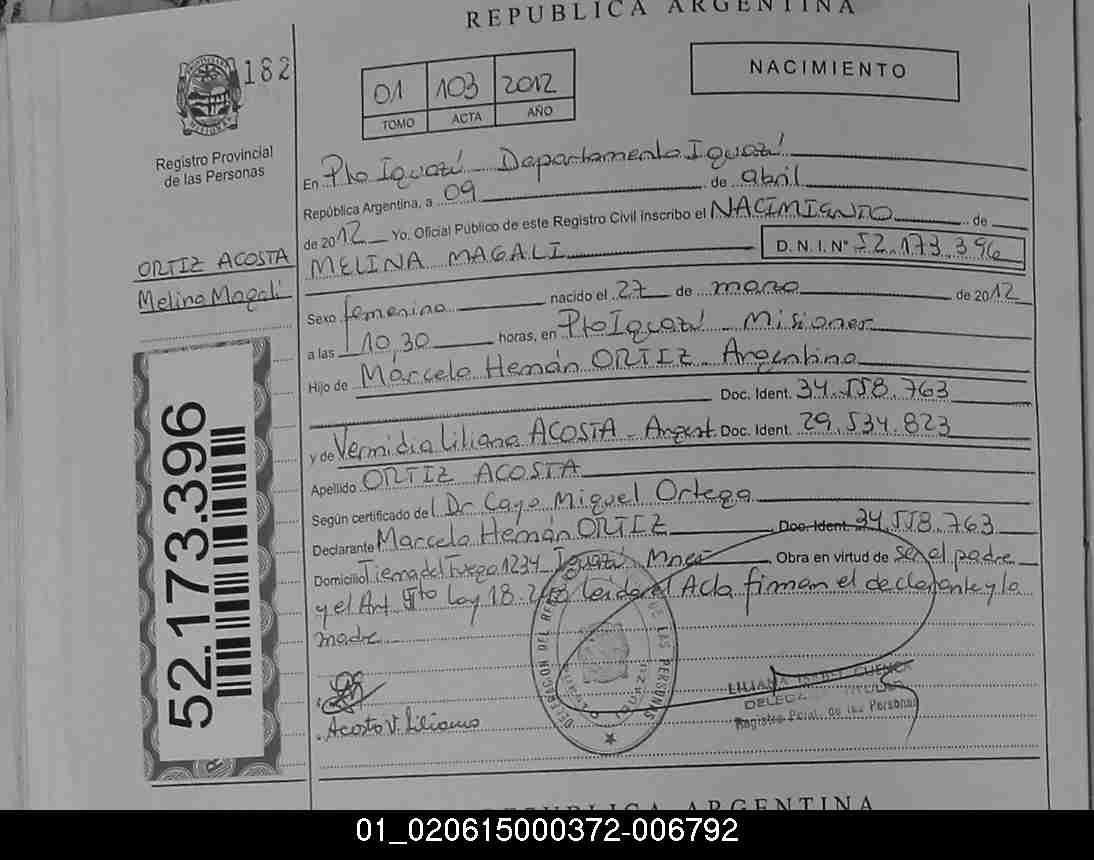 REPUBLICA ARGENTINA
182
01 103 2012
TOMO ACTA AÑO
NACIMIENTO
Registro Provincial
de las Personas
En Pto Iguazú Departamento Iguazú
República Argentina, a 09 de abril
de 2012 Yo, Oficial Público de este Registro Civil inscribo el NACIMIENTO de
MELINA MAGALI D. N. I. N° 52.173.396
ORTIZ ACOSTA
Melina Magalí
Sexo femenino nacido el 27 de marzo de 2012
a las 10,30 horas, en Pto Iguazú Misiones
Hijo de Marcelo Hernán ORTIZ Argentino
Doc. Ident. 34.558.763
y de Vermidia Liliana ACOSTA - Argent. Doc. Ident. 29.534.823
Apellido ORTIZ ACOSTA
Según certificado del Dr Cayo Miguel Ortega
Declarante Marcelo Hernán ORTIZ Doc. Ident 34.558.763
Domicilio Tierra del Fuego 1234 Iguazú Mnes Obra en virtud de ser el padre
y el Art 5to Ley 18. Leída el Acta firman el declarante y la
madre
52.173.396
Acosta V. Liliana
DELEGACION DEL DE LAS PERSONAS
LILIANA CUENCA
TITULAR
Registro Pcial. de las Personas
REPUBLICA ARGENTINA
01_020615000372-006792